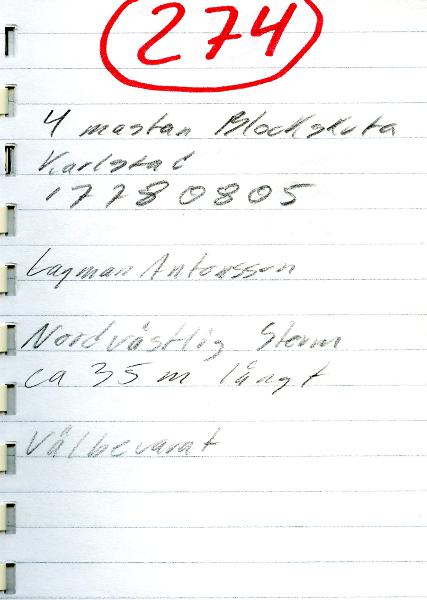 274
4 mastan Blockskuta
Karlstad
17780805
Lagman Antonsson
Nordvästlig Storm
ca 35 m långt
Välbevarat